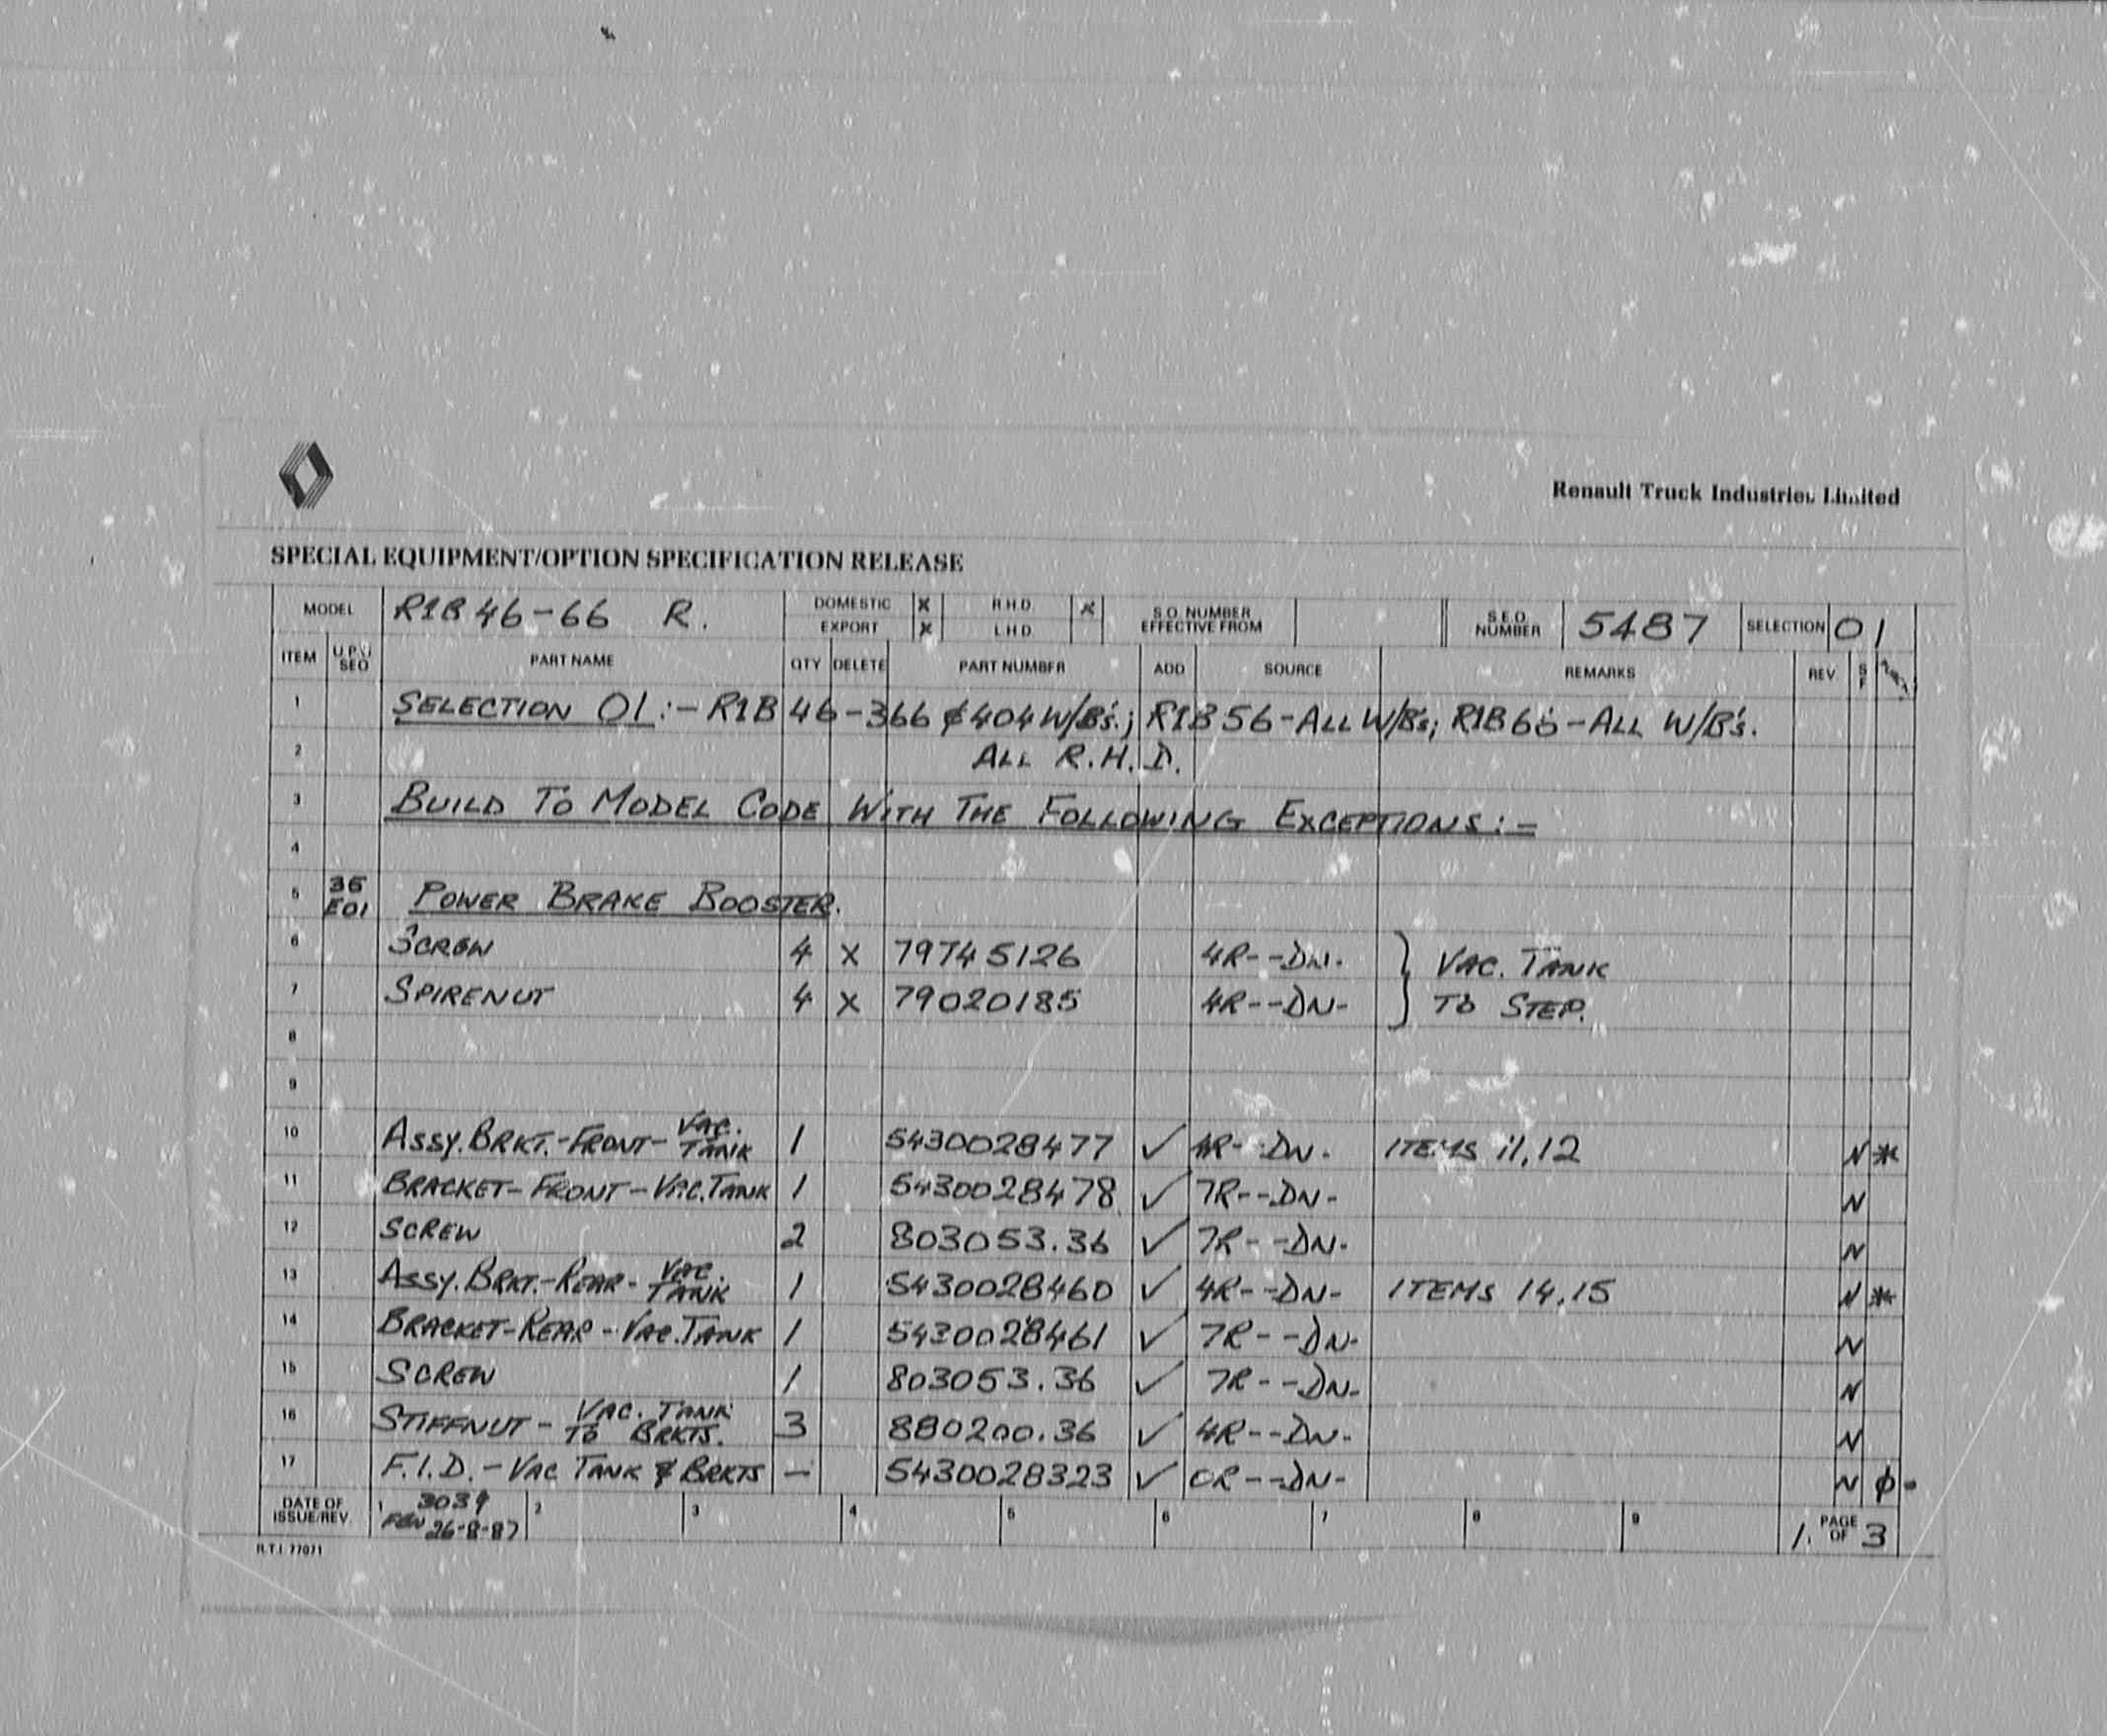 Renault Truck Industries Limited
SPECIAL EQUIPMENT/OPTION SPECIFICATION RELEASE
MODEL R1B 46-66 R. DOMESTIC X R.H.D. X S.O. NUMBER EFFECTIVE FROM S.E.O. NUMBER 5487 SELECTION 01
EXPORT X L.H.D.
ITEM U.P.G SEQ PART NAME QTY DELETE PART NUMBER ADD SOURCE REMARKS REV S F
1 SELECTION 01:- R1B 46-366 & 404 W/B's.; R1B 56-ALL W/B's; R1B 66-ALL W/B's.
2 ALL R.H.D.
3 BUILD TO MODEL CODE WITH THE FOLLOWING EXCEPTIONS:-
4
5 36 E01 POWER BRAKE BOOSTER.
6 SCREW 4 X 79745126 4R--DN- } VAC. TANK
7 SPIRENUT 4 X 79020185 4R--DN- } TO STEP.
8
9
10 ASSY. BRKT.-FRONT-VAC. TANK 1 5430028477 ✓ 4R--DN- ITEMS 11,12 N *
11 BRACKET-FRONT-VAC.TANK 1 5430028478 ✓ 7R--DN- N
12 SCREW 2 803053.36 ✓ 7R--DN- N
13 ASSY. BRKT.-REAR-VAC. TANK 1 5430028460 ✓ 4R--DN- ITEMS 14,15 N *
14 BRACKET-REAR-VAC.TANK 1 5430028461 ✓ 7R--DN- N
15 SCREW 1 803053.36 ✓ 7R--DN- N
16 STIFFNUT-VAC. TANK TO BRKTS. 3 880200.36 ✓ 4R--DN- N
17 F.I.D.-VAC TANK & BRKTS - 5430028323 ✓ 0R--DN- N ϕ
DATE OF ISSUE/REV. 1 3039 26-8-87 2 3 4 5 6 7 8 9 1. PAGE OF 3
R.T.I. 77071